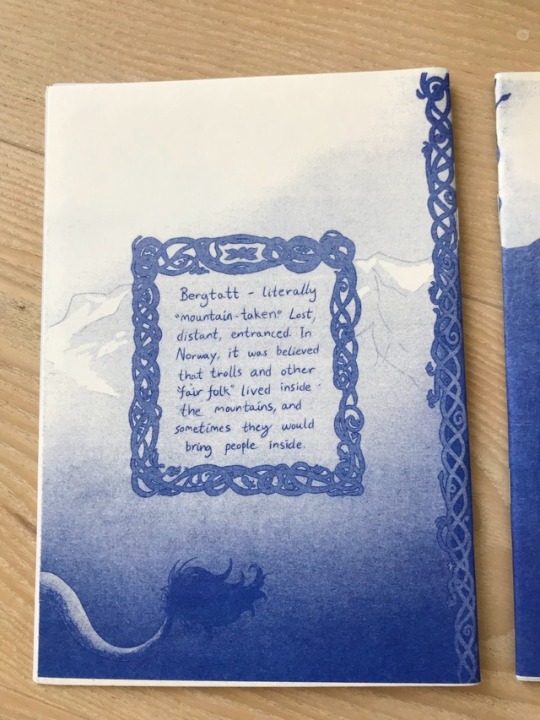 Bergtatt - literally
"mountain-taken" Lost,
distant, entranced. In
Norway, it was believed
that trolls and other
"fair folk" lived inside
the mountains, and
sometimes they would
bring people inside.